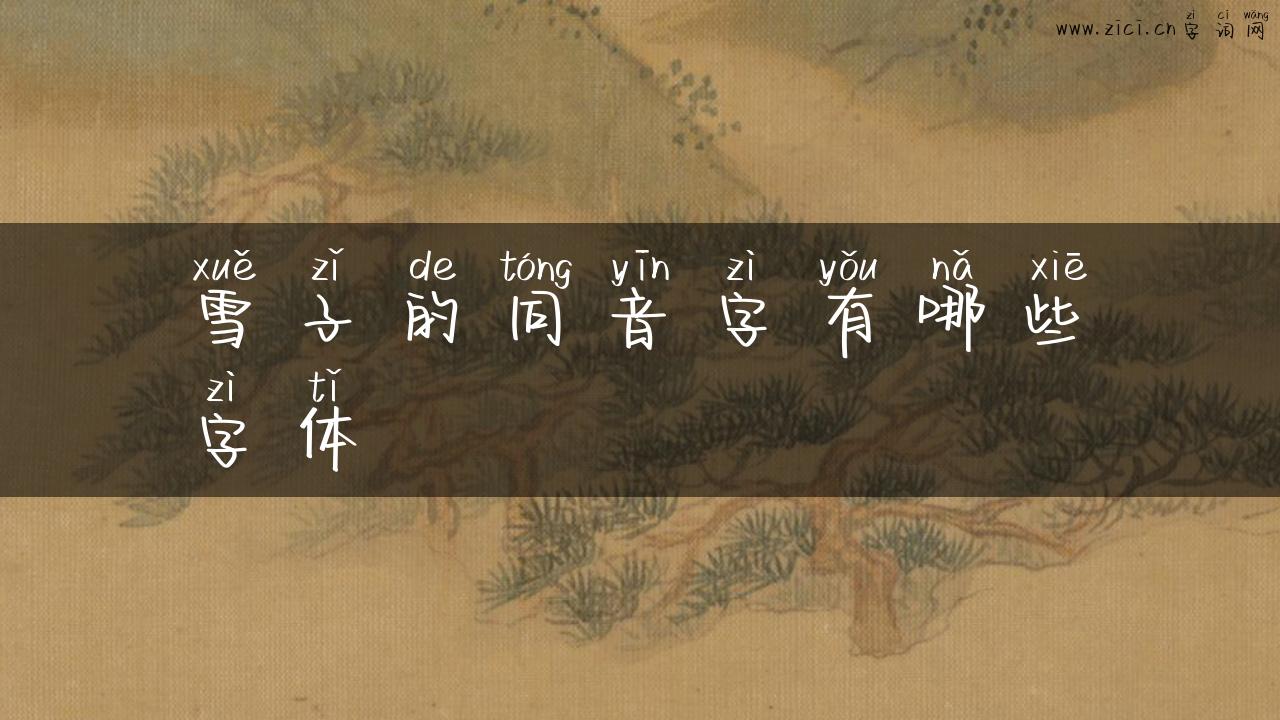 zì cí wǎng
www.zici.cn 字 词 网
xuě zǐ de tóng yīn zì yǒu nǎ xiē
雪 子 的 同 音 字 有 哪 些
zì tǐ
字 体